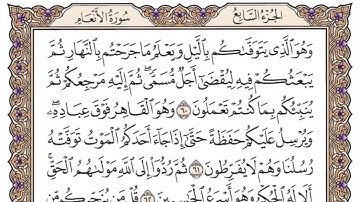 الجزء السابع سورة الأنعام
وَهُوَ ٱلَّذِى يَتَوَفَّىٰكُم بِٱلَّيْلِ وَيَعْلَمُ مَا جَرَحْتُم بِٱلنَّهَارِ ثُمَّ
يَبْعَثُكُمْ فِيهِ لِيُقْضَىٰٓ أَجَلٌ مُّسَمًّى ثُمَّ إِلَيْهِ مَرْجِعُكُمْ ثُمَّ
يُنَبِّئُكُم بِمَا كُنتُمْ تَعْمَلُونَ ٦٠ وَهُوَ ٱلْقَاهِرُ فَوْقَ عِبَادِهِۦ
وَيُرْسِلُ عَلَيْكُمْ حَفَظَةً حَتَّىٰٓ إِذَا جَآءَ أَحَدَكُمُ ٱلْمَوْتُ تَوَفَّتْهُ
رُسُلُنَا وَهُمْ لَا يُفَرِّطُونَ ٦١ ثُمَّ رُدُّوٓا۟ إِلَى ٱللَّهِ مَوْلَىٰهُمُ ٱلْحَقِّ
أَلَا لَهُ ٱلْحُكْمُ وَهُوَ أَسْرَعُ ٱلْحَٰسِبِينَ ٦٢ قُلْ مَن يُنَجِّيكُم مِّن